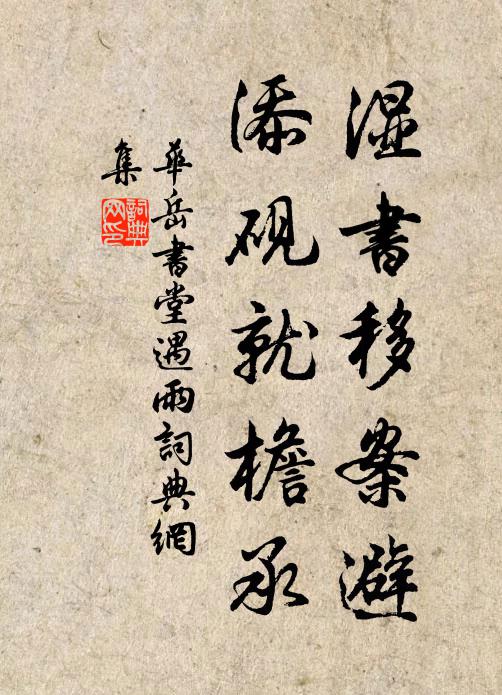 湿書移案避
添硯就檐承
華岳書堂遇雨詞典網
集
詞典
网印